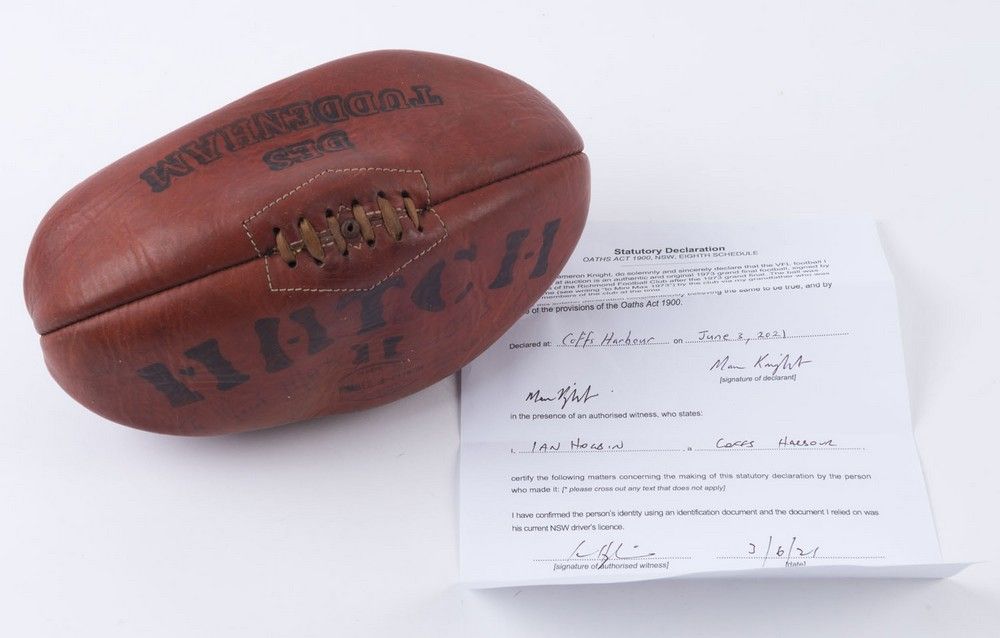 DES
TUDDENHAM
HITCH
Statutory Declaration
OATHS ACT 1900, NSW, EIGHTH SCHEDULE
Cameron Knight, do solemnly and sincerely declare that the VFL football I
at auction is an authentic and original 1973 grand final football, signed by
of the Richmond Football Club after the 1973 grand final. The ball was
me (see writing "to Mini Max 1973") by the club via my grandfather who was
members of the club at the time
believing the same to be true, and by
of the provisions of the Oaths Act 1900.
Declared at: Coffs Harbour on June 3, 2021
[signature of declarant]
in the presence of an authorised witness, who states:
I, IAN HOGBIN, a COFFS HARBOUR,
certify the following matters concerning the making of this statutory declaration by the person
who made it: [* please cross out any text that does not apply]
I have confirmed the person's identity using an identification document and the document I relied on was
his current NSW driver's licence.
3/6/21
[signature of authorised witness] [date]